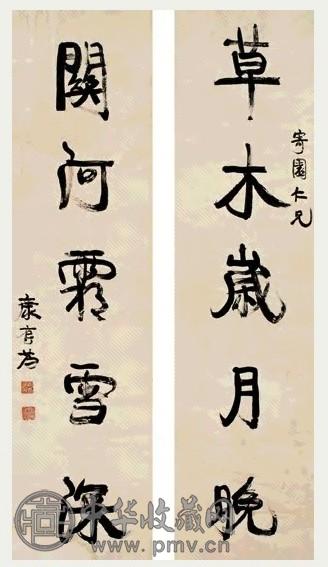 草木歲月晚
寄園仁兄
關河霜雪深
康有為
中华收藏网
www.pmv.cn